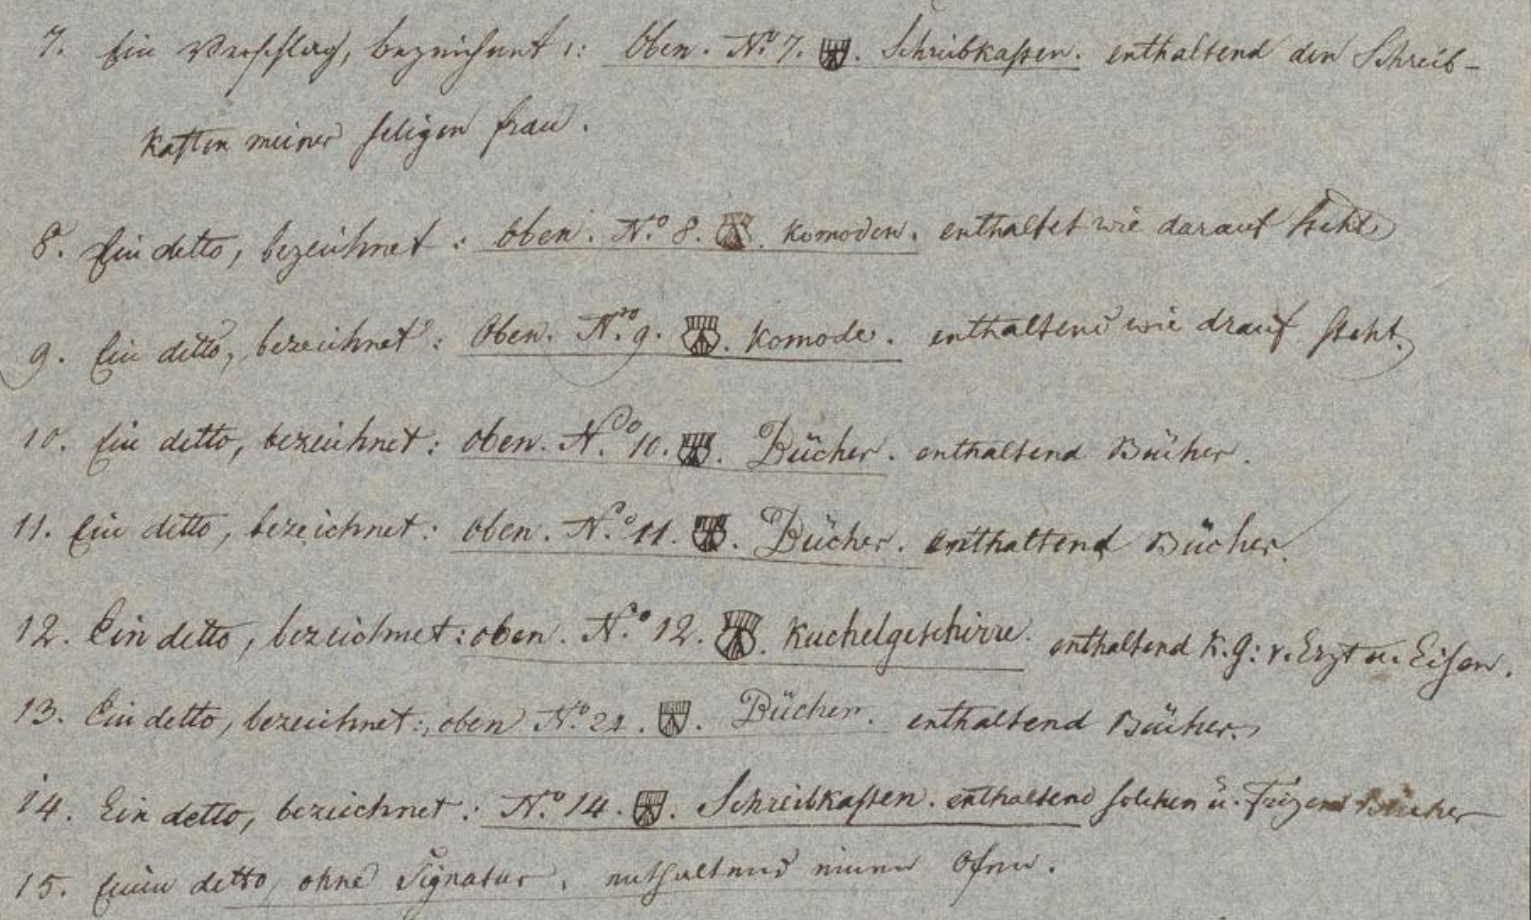 7. Ein Verschlag, bezeichnet: Oben. No 7. Schreibkasten. enthaltend den Schreib-
kasten meiner seligen Frau.
8. Ein detto, bezeichnet: oben. No 8. Komoden. enthaltet wie darauf steht
9. Ein ditto, bezeichnet: Oben. No 9. Komode. enthaltend wie drauf steht.
10. Ein ditto, bezeichnet: oben. No 10. Bücher. enthaltend Bücher.
11. Ein ditto, bezeichnet: oben. No 11. Bücher. enthaltend Bücher.
12. Ein detto, bezeichnet: oben. No 12. Kuchelgeschirre. enthaltend K. G: v. Erzt u. Eisen.
13. Ein detto, bezeichnet: oben No 21. Bücher. enthaltend Bücher.
14. Ein detto, bezeichnet: No 14. Schreibkasten. enthaltend solchen u. Bücher
15. Einen detto, ohne Signatur, enthaltend einen Ofen.